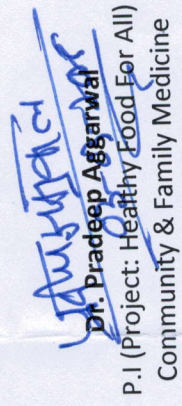 Dr. Pradeep Aggarwal
P.I (Project: Healthy Food For All)
Community & Family Medicine